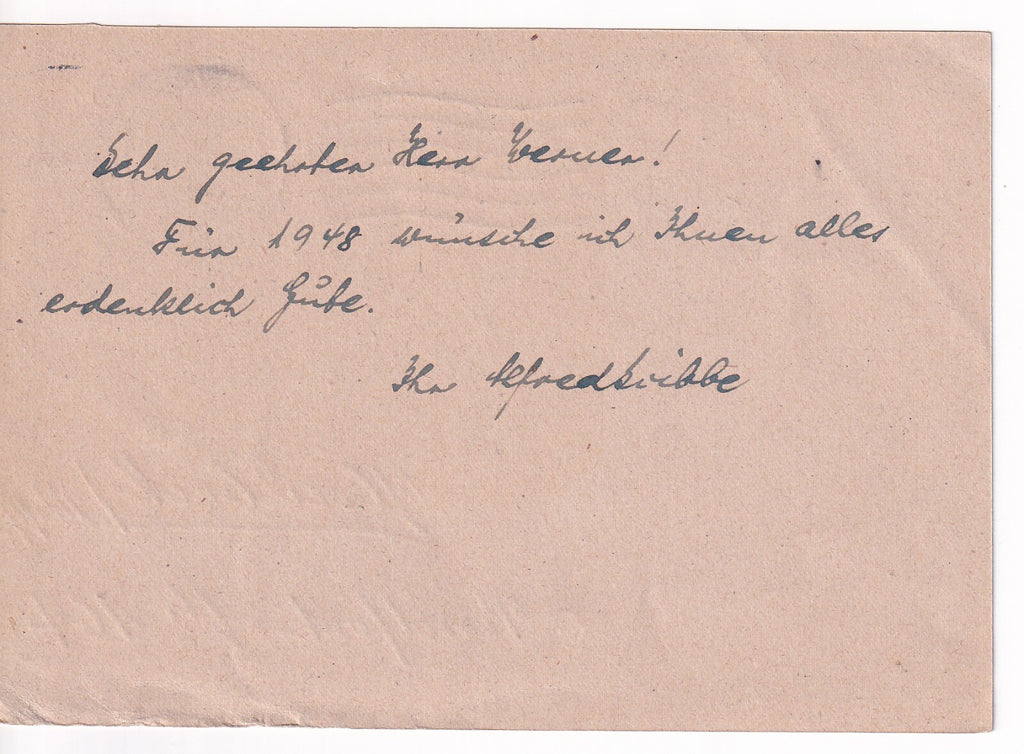 Sehr geehrter Herr Werner!
Für 1948 wünsche ich Ihnen alles
erdenklich Gute.
Ihr Alfred